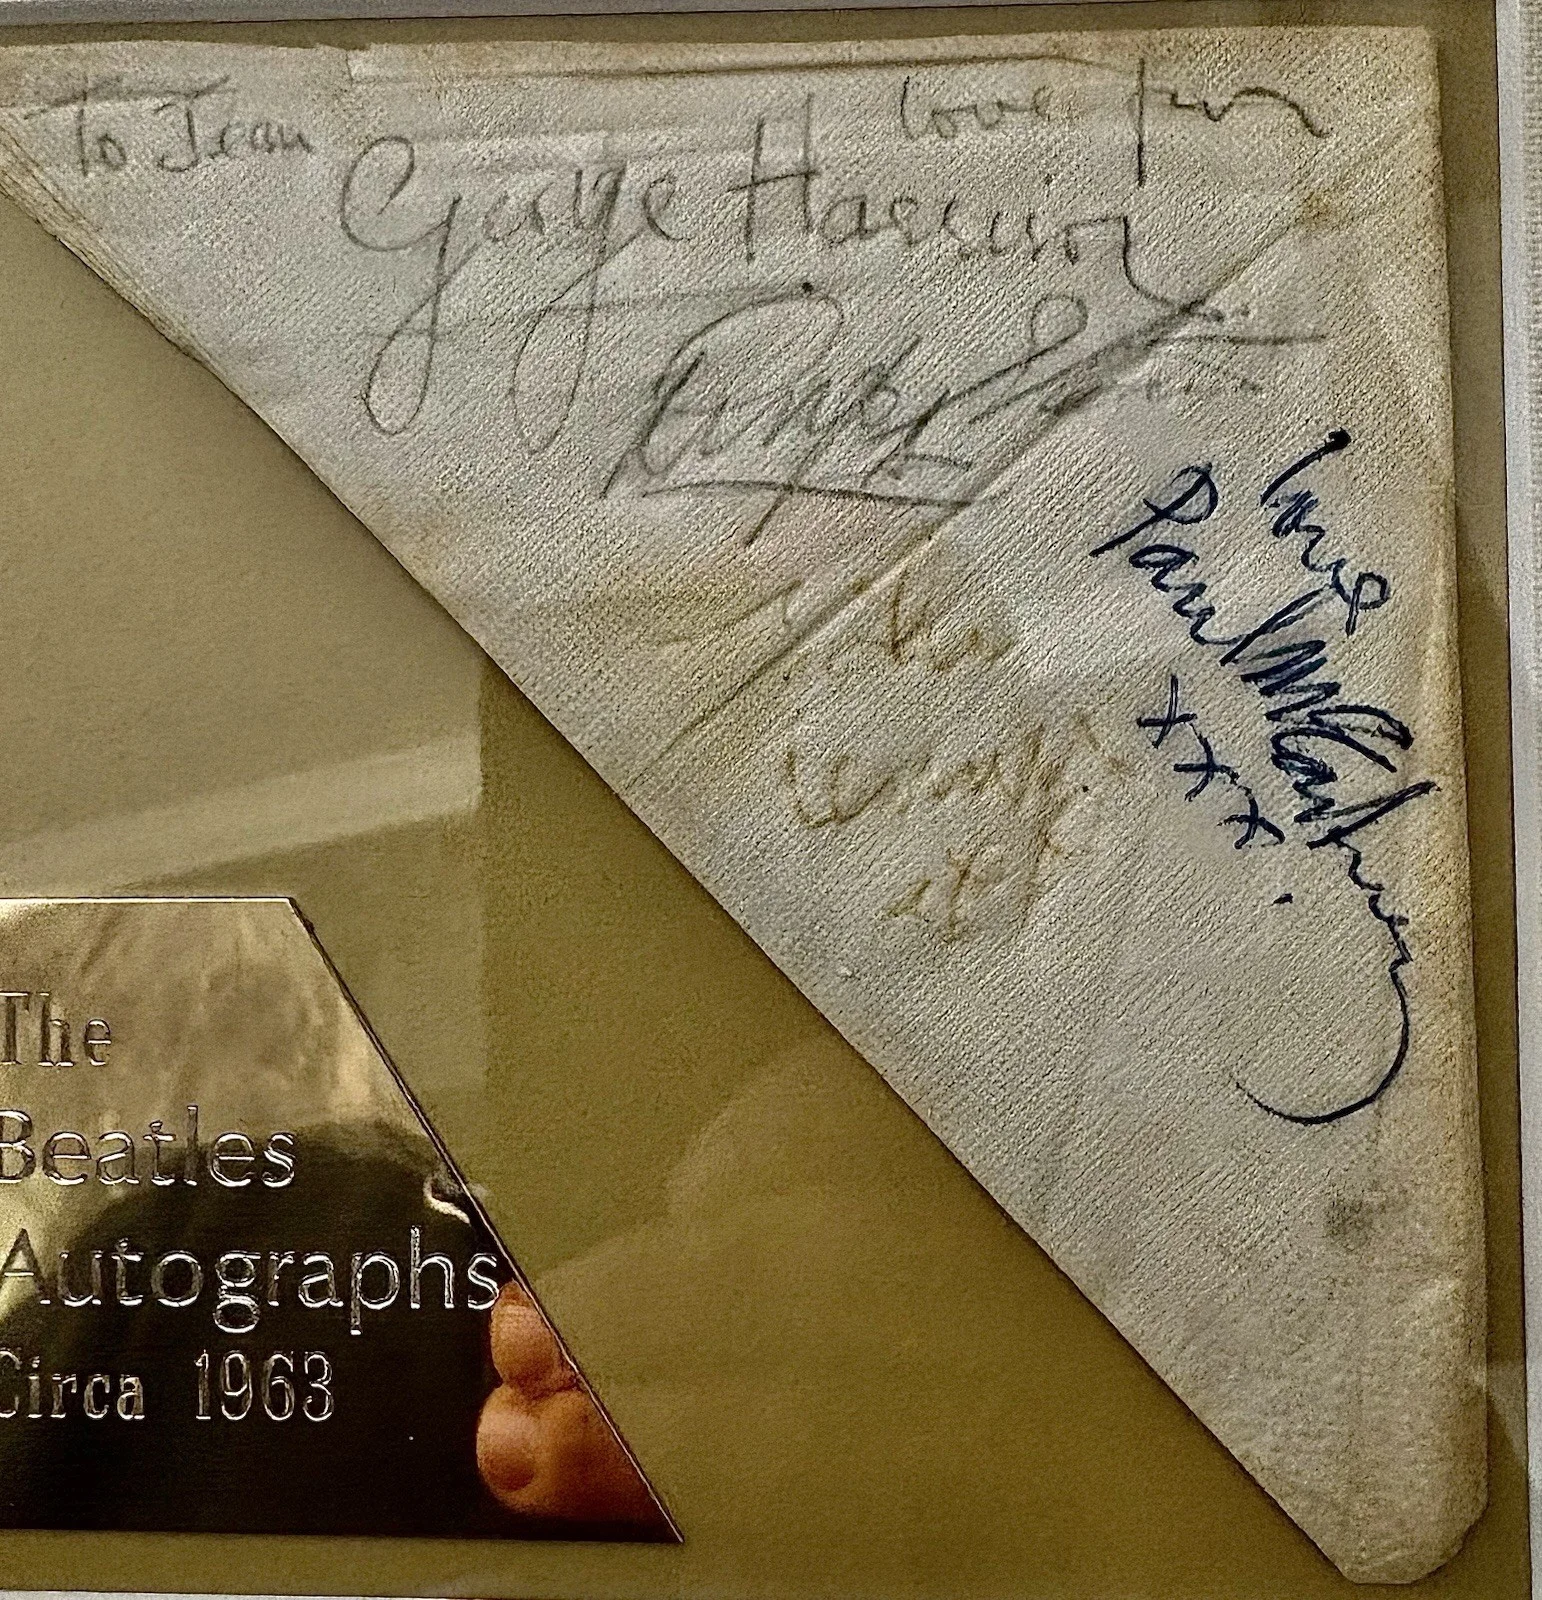 To Jean
love from
George Harrison
Ringo Starr
love
Paul McCartney
xxx
The
Beatles
Autographs
Circa 1963